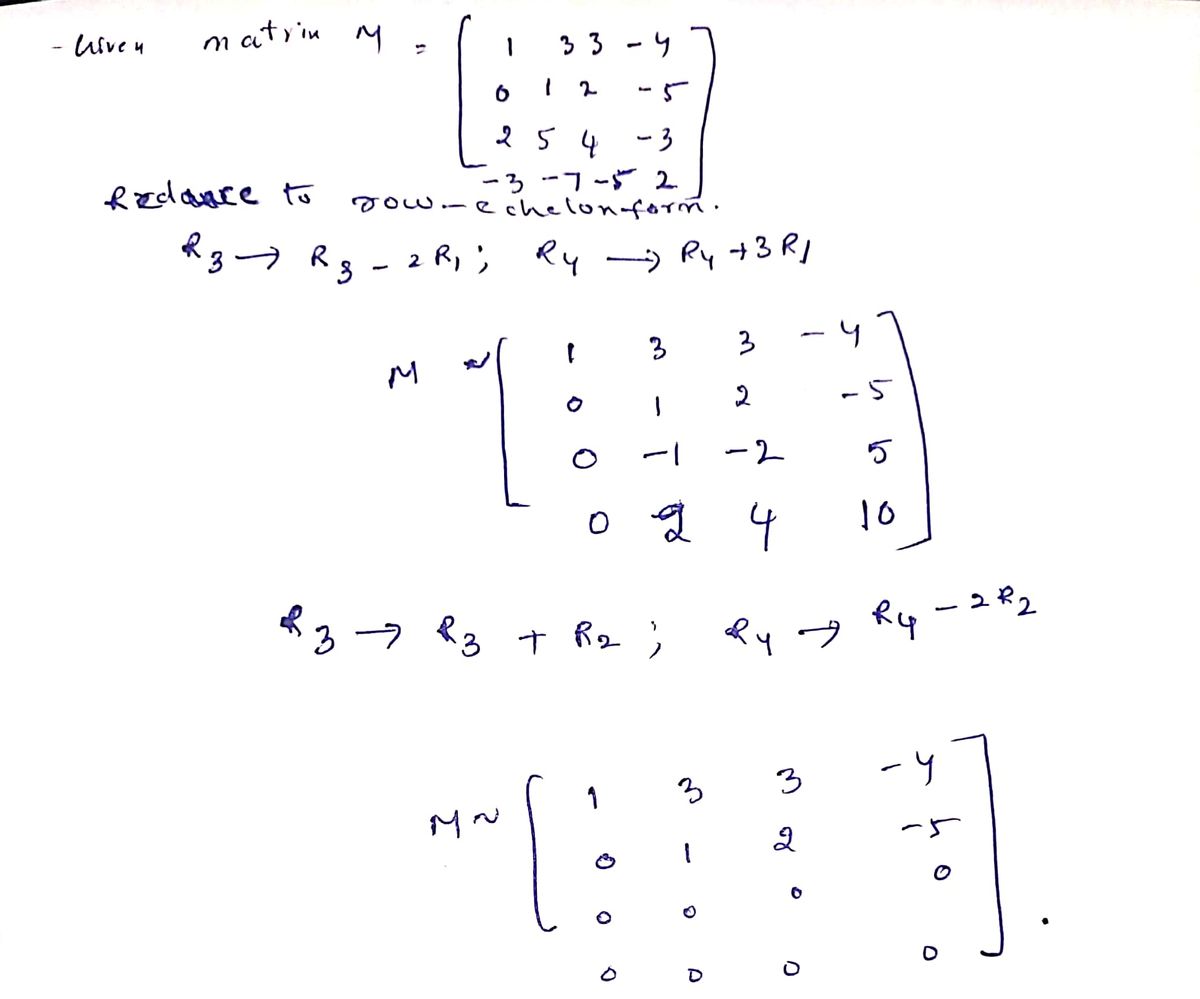 - Given matrix M = [ 1 3 3 -4
0 1 2 -5
2 5 4 -3
-3 -7 -5 2 ]
Reduce to row-echelon form.
R3 → R3 - 2R1; R4 → R4 + 3R1
M ~ [ 1 3 3 -4
0 1 2 -5
0 -1 -2 5
0 2 4 10 ]
R3 → R3 + R2; R4 → R4 - 2R2
M ~ [ 1 3 3 -4
0 1 2 -5
0 0 0 0
0 0 0 0 ].